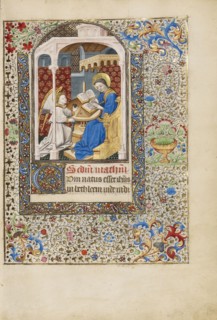 Secundum matheum.
Cum natus esset ihesus
in bethleem iude in di